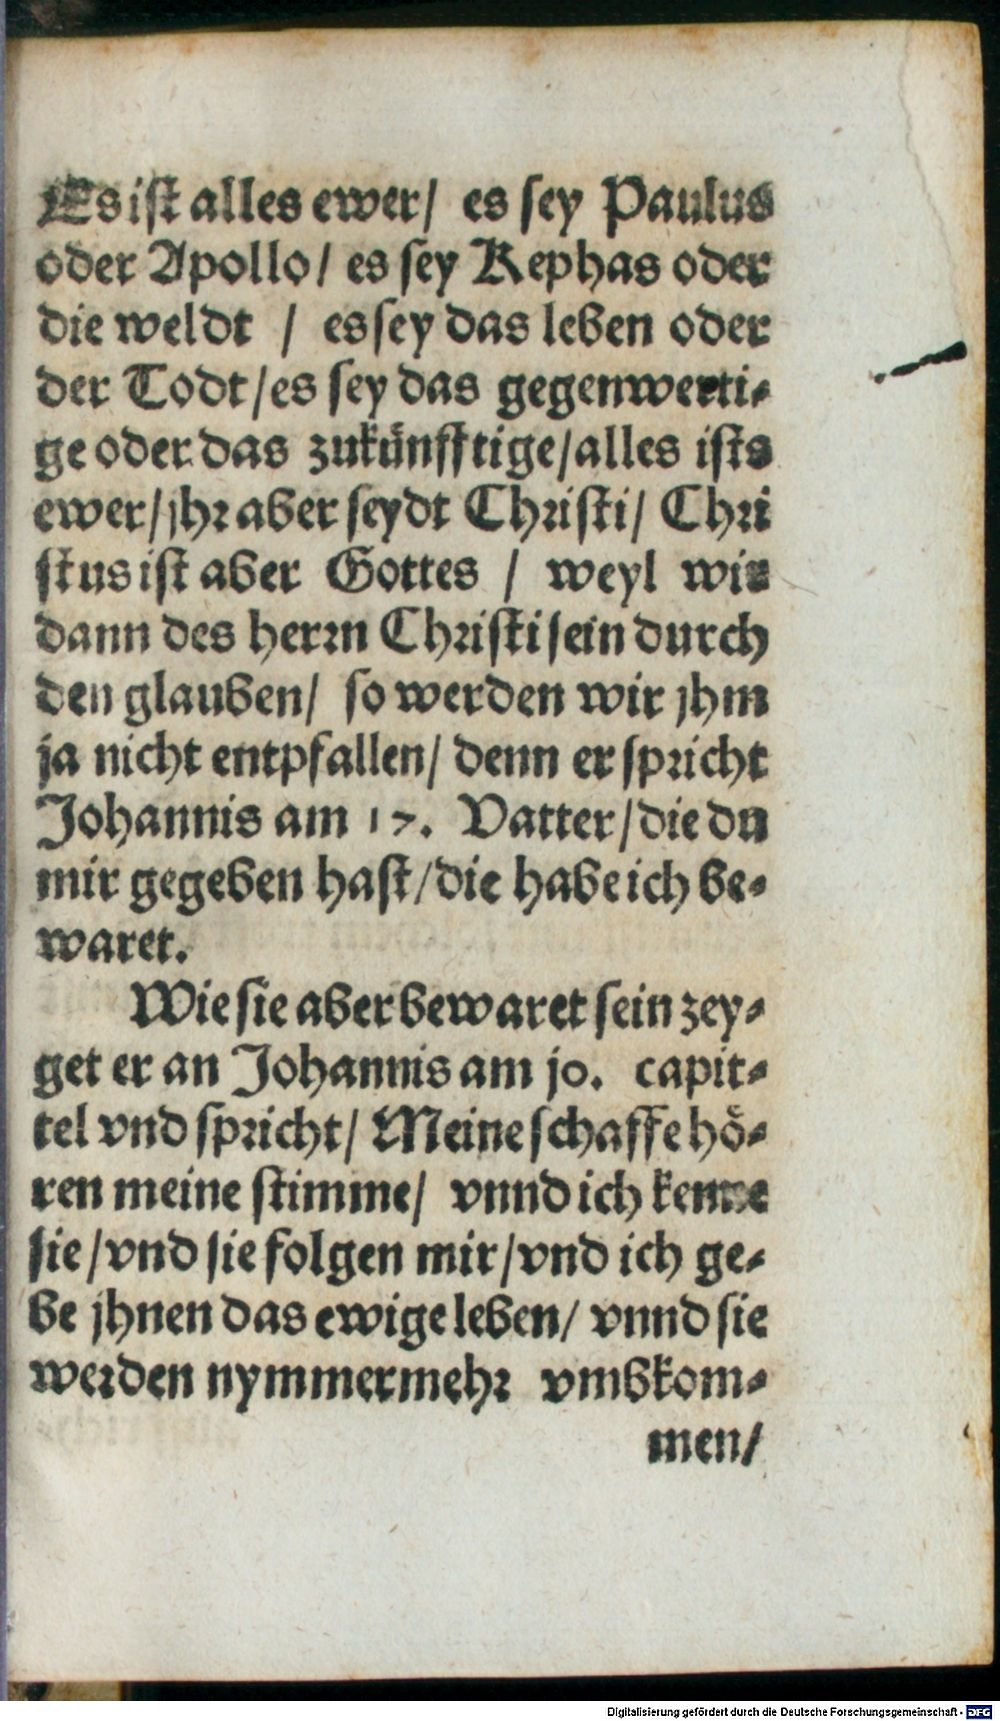 Es ist alles ewer/ es sey Paulus
oder Apollo/ es sey Kephas oder
die weldt / es sey das leben oder
der Todt/es sey das gegenwerti-
ge oder das zukünfftige/alles ists
ewer/jhr aber seydt Christi/ Chri
stus ist aber Gottes / weyl wir
dann des herrn Christi sein durch
den glauben/ so werden wir jhm
ja nicht entpfallen/ denn er spricht
Johannis am 17. Vatter/die du
mir gegeben hast/die habe ich be-
waret.
Wie sie aber bewaret sein zey-
get er an Johannis am jo. capit-
tel vnd spricht/ Meine schaffe hö-
ren meine stimme/ vnnd ich kenne
sie/vnd sie folgen mir/vnd ich ge-
be jhnen das ewige leben/ vnnd sie
werden nymmermehr vmbkom-
men/
Digitalisierung gefördert durch die Deutsche Forschungsgemeinschaft - DFG